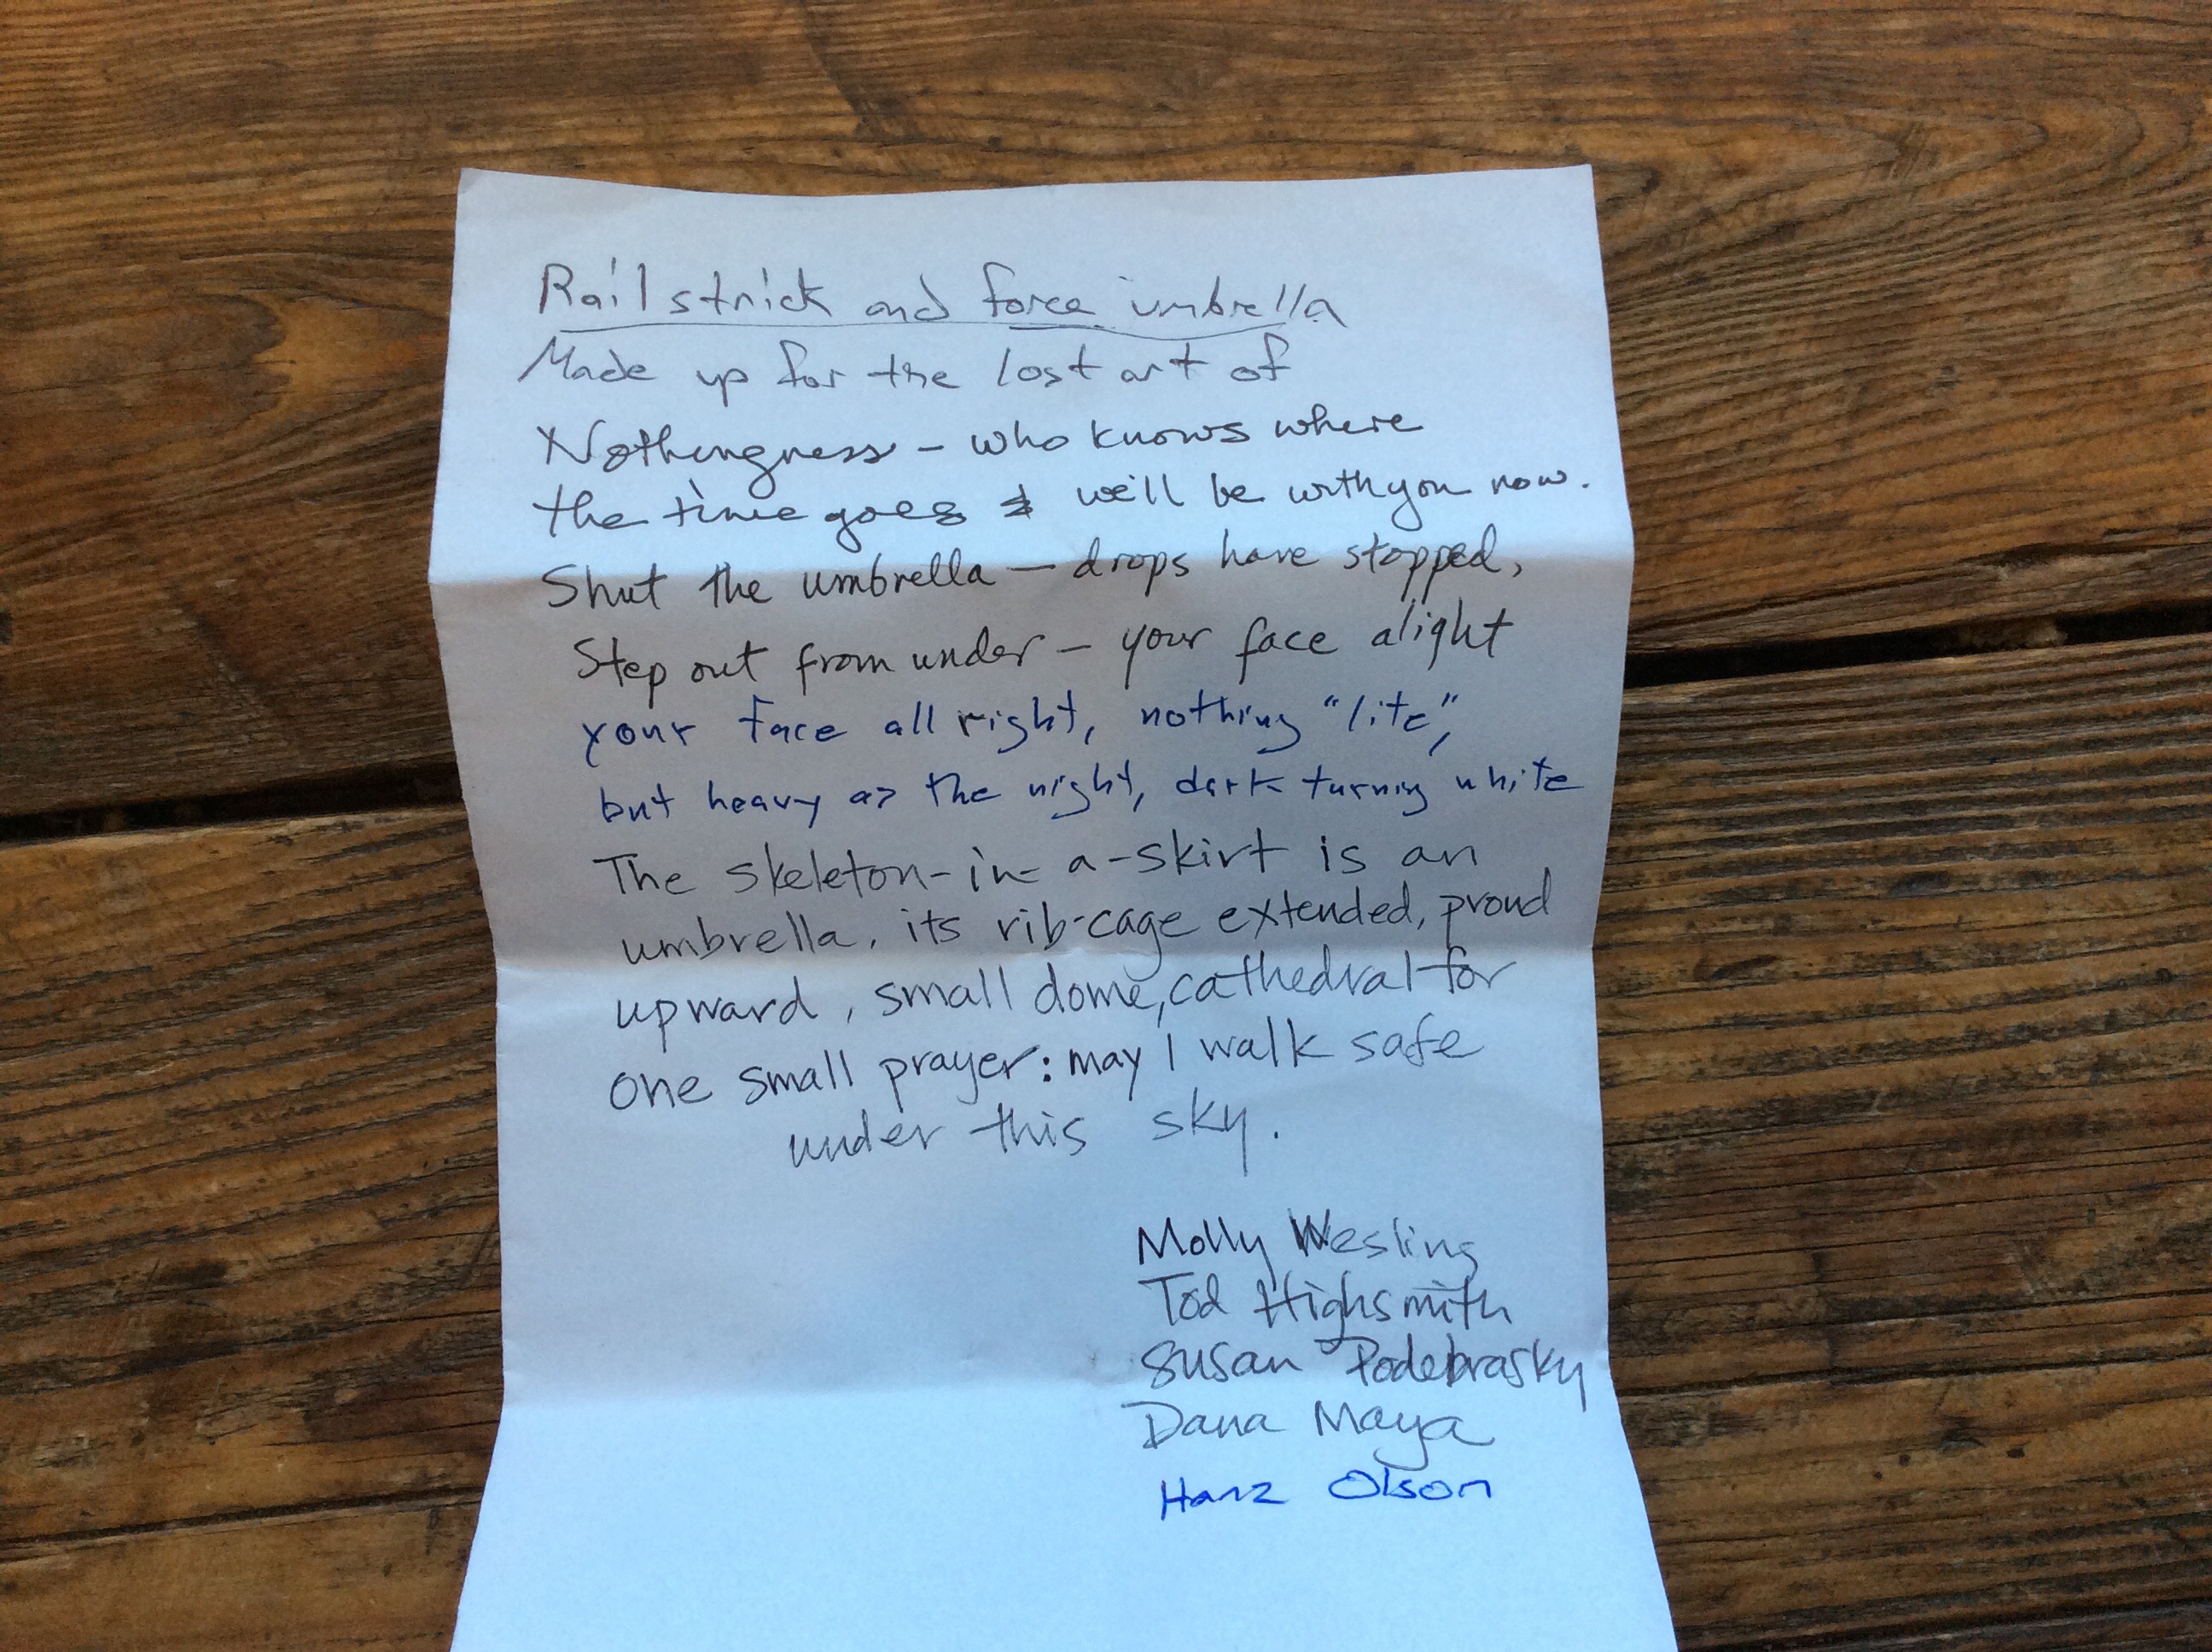 Rail strick and force umbrella
Made up for the lost art of
Nothingness – who knows where
the time goes & we'll be with you now.
Shut the umbrella — drops have stopped,
Step out from under – your face alight
your face all right, nothing "lite",
but heavy as the night, dark turning white
The skeleton-in-a-skirt is an
umbrella, its rib-cage extended, proud
upward, small dome, cathedral for
one small prayer: may I walk safe
under this sky.
Molly Wesling
Tod Highsmith
Susan Podebrasky
Dana Maya
Hanz Olson